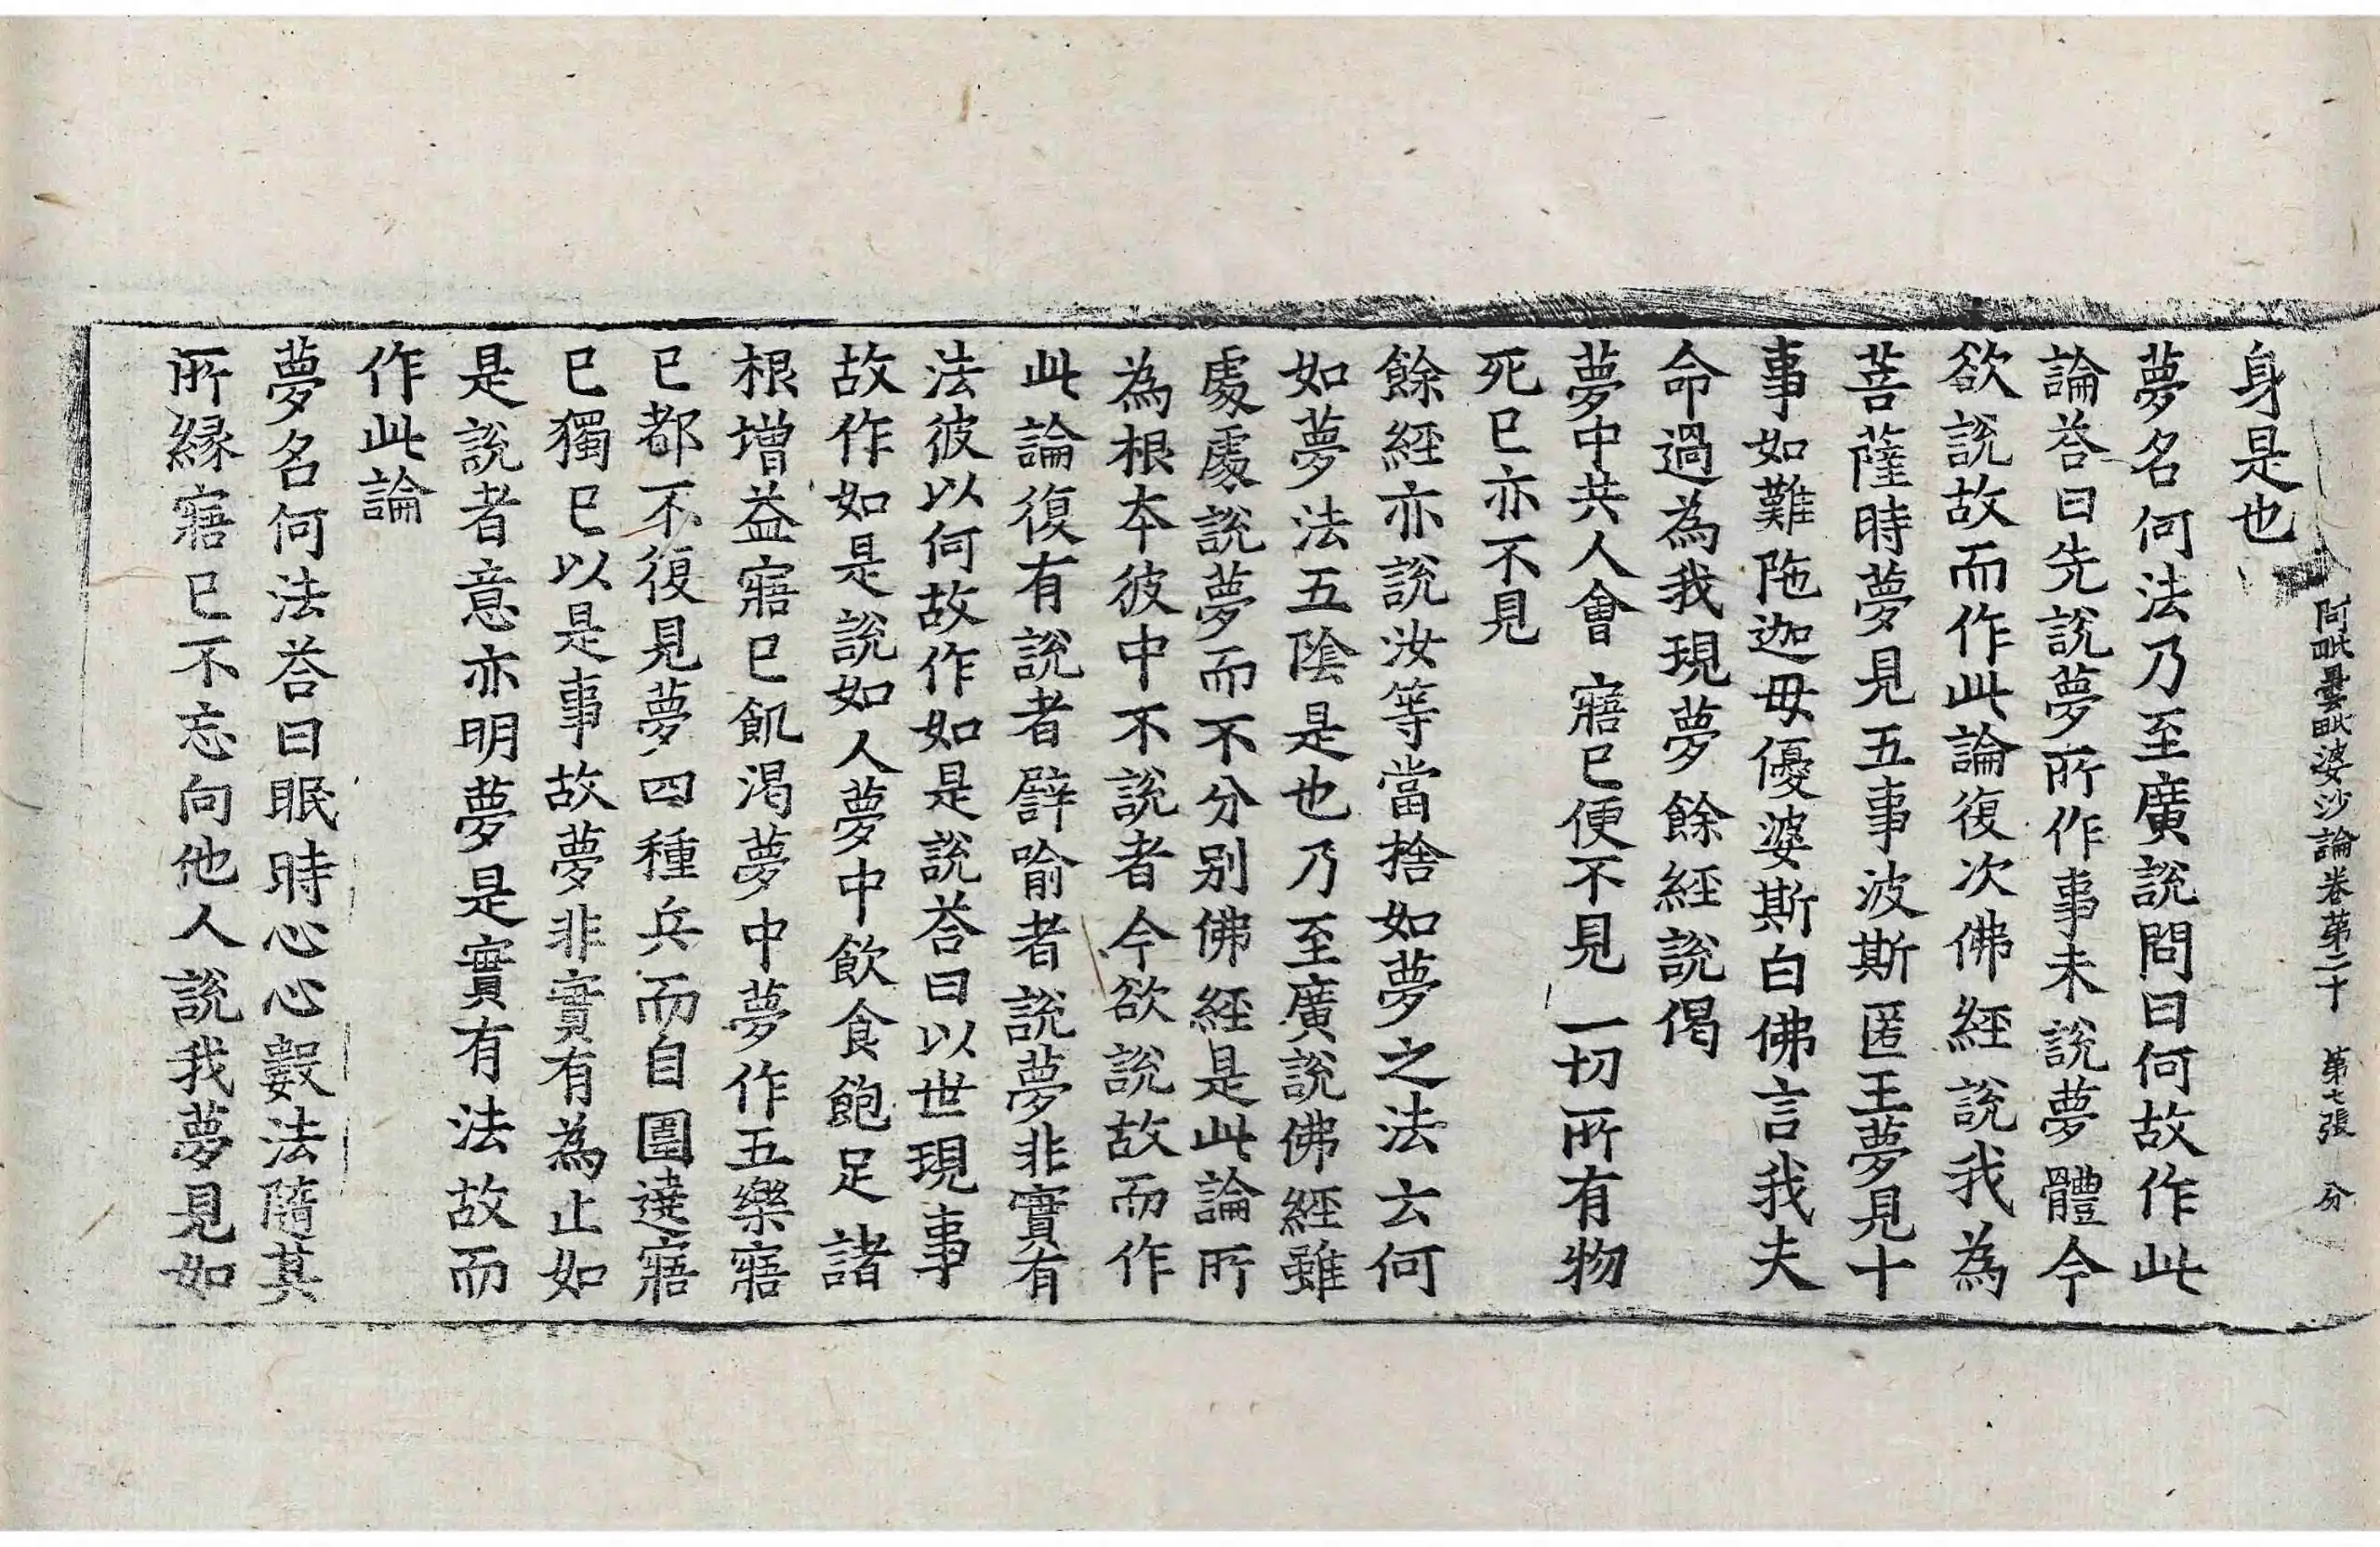 阿毗曇毗婆沙論卷第二十 第七張 分
身是也
夢名何法乃至廣說問曰何故作此
論荅曰先說夢所作事未說夢體今
欲說故而作此論復次佛經說我為
菩薩時夢見五事波斯匿王夢見十
事如難陁迦毋優婆斯白佛言我夫
命過為我現夢餘經說偈
夢中共人會 寤已便不見 一切所有物
死已亦不見
餘經亦說汝等當捨如夢之法云何
如夢法五陰是也乃至廣說佛經雖
處處說夢而不分別佛經是此論所
為根本彼中不說者今欲說故而作
此論復有說者譬喻者說夢非實有
法彼以何故作如是說荅曰以世現事
故作如是說如人夢中飲食飽足諸
根增益寤已飢渴夢中夢作五樂寤
已都不復見夢四種兵而自圍遶寤
已獨已以是事故夢非實有為止如
是說者意亦明夢是實有法故而
作此論
夢名何法荅曰眠時心心數法隨其
所緣寤已不忘向他人說我夢見如